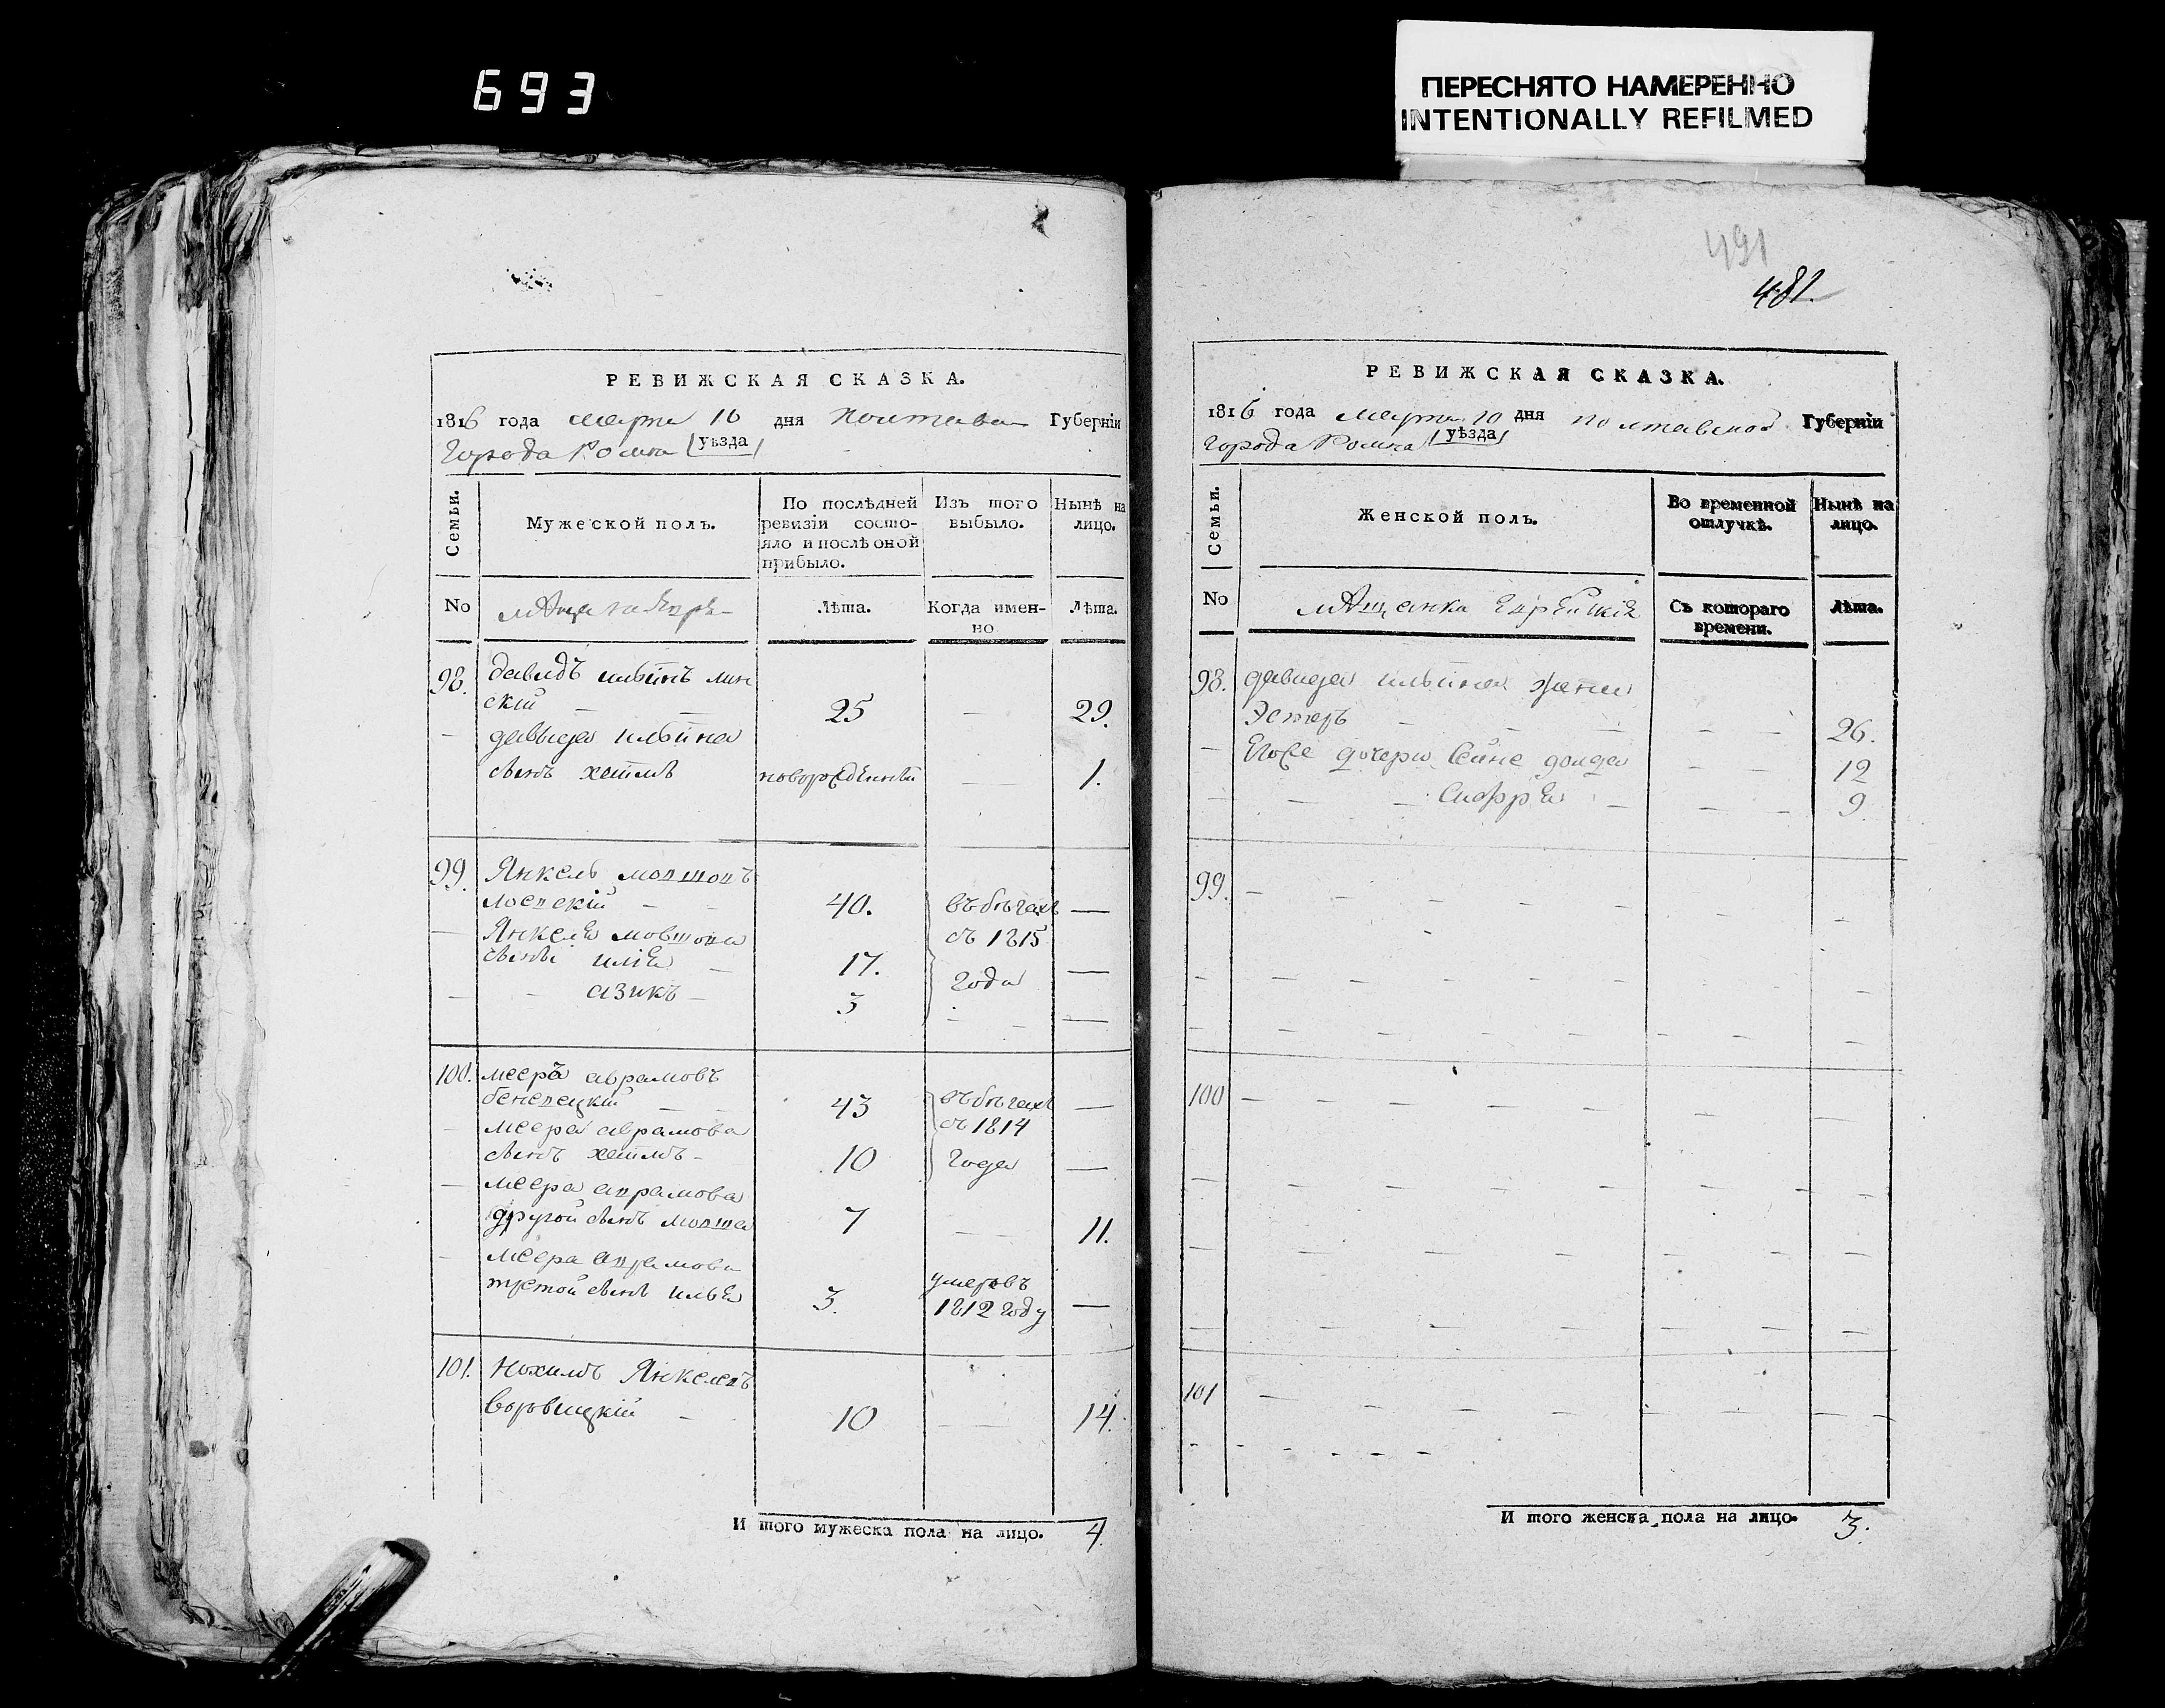 693
ПЕРЕСНЯТО НАМЕРЕННО
INTENTIONALLY REFILMED
РЕВИЖСКАЯ СКАЗКА.
1816 года марта 10 дня Полтавс Губернiи
Города Ромна (уѣзда)
Семьи.
Мужеской полъ.
По послѣдней
ревизiи состо-
яло и послѣ оной
прибыло.
Изъ того
выбыло.
Нынѣ на
лицо.
No
Лѣта.
Когда имен-
но
Лѣта.
98. давидъ ильинъ мин
скiй — — 25 — 29.
— давыда ильина
сынъ хаимъ новорожденный — 1.
99. Янкель мовшовъ
лоевскiй — — 40. въ бѣгахъ —
— Янкеля мовшова съ 1815
сыны илiя — 17. года —
— — азикъ — 3 — — —
100. меера аврамовъ
беневецкiй — — 43 въ бѣгахъ —
— меера аврамова съ 1814
сынъ хаимъ — 10 года —
— меера аврамова
другой сынъ мовша 7 — — 11.
— меера аврамова
третой сынъ илья 3. умеръ въ
1812 году —
101. Нохимъ Янкелевъ
боровицкiй — 10 — 14.
И того мужеска пола на лицо. 4.
491
481.
РЕВИЖСКАЯ СКАЗКА.
1816 года марта 10 дня полтавской Губернiи
города Ромна (уѣзда)
Семьи.
Женской полъ.
Во временной
отлучкѣ.
Нынѣ на
лицо.
No
мѣщанка Еврейскiя
Съ котораго
времени.
Лѣта.
98. давида ильина жена
Эстеръ — — — — 26.
— Его дочери — — 12
— — — — — — 9
99. —
100 —
101 —
И того женска пола на лицо. 3.